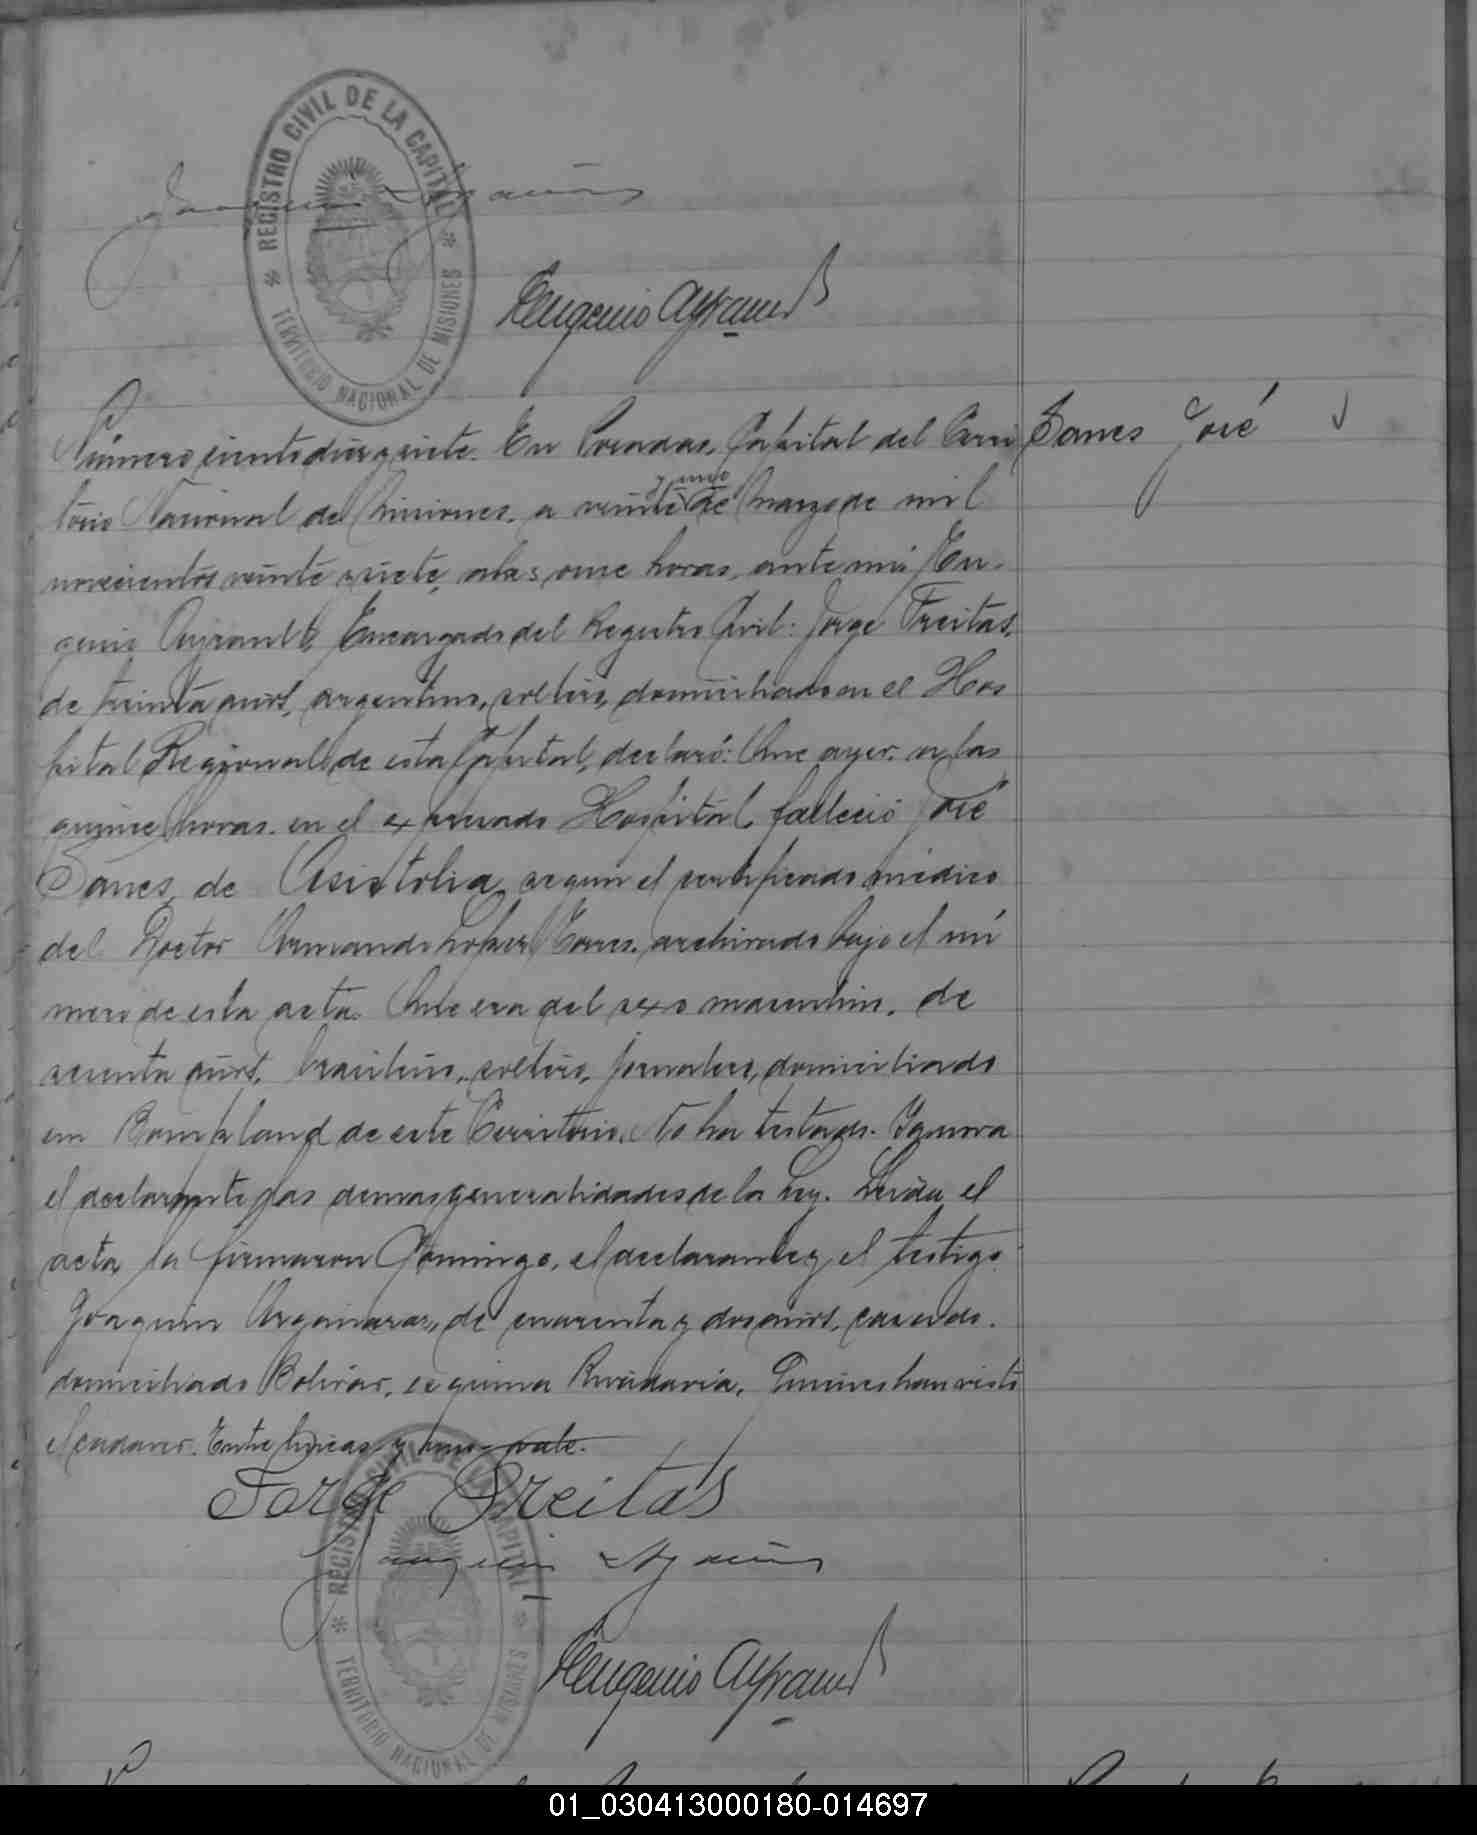 REGISTRO CIVIL DE LA CAPITAL
TERRITORIO NACIONAL DE MISIONES
Eugenio Ayrault
Número ciento diez y siete. En Posadas, Capital del Terri
torio Nacional de Misiones, a veinte y uno de Marzo de mil
novecientos veinte y siete, a las once horas, ante mi Eu-
genio Ayrault, Encargado del Registro Civil: Jorge Freitas,
de treinta años, argentino, soltero, domiciliado en el Hos
pital Regional de esta Capital, declaró: Que ayer, a las
quince horas, en el expresado Hospital, falleció José
Sanes, de Asistolia, según el certificado médico
del Doctor Armando Lopez Torres, archivado bajo el nú
mero de esta acta. Que era del sexo masculino, de
sesenta años, brasilero, soltero, jornalero, domiciliado
en Bompland de este Territorio. No ha testado. Ignora
el declarante las demas generalidades de la Ley. Leída el
acta, la firmaron Conmigo, el declarante y el testigo
Joaquin Argañaras, de cuarenta y dos años, casado,
domiciliado Bolivar, esquina Rivadavia, Quienes han visto
el cadaver. Entre lineas y uno - vale.
Sanes José
Jorge Freitas
Eugenio Ayrault
REGISTRO CIVIL DE LA CAPITAL
TERRITORIO NACIONAL DE MISIONES
01_030413000180-014697